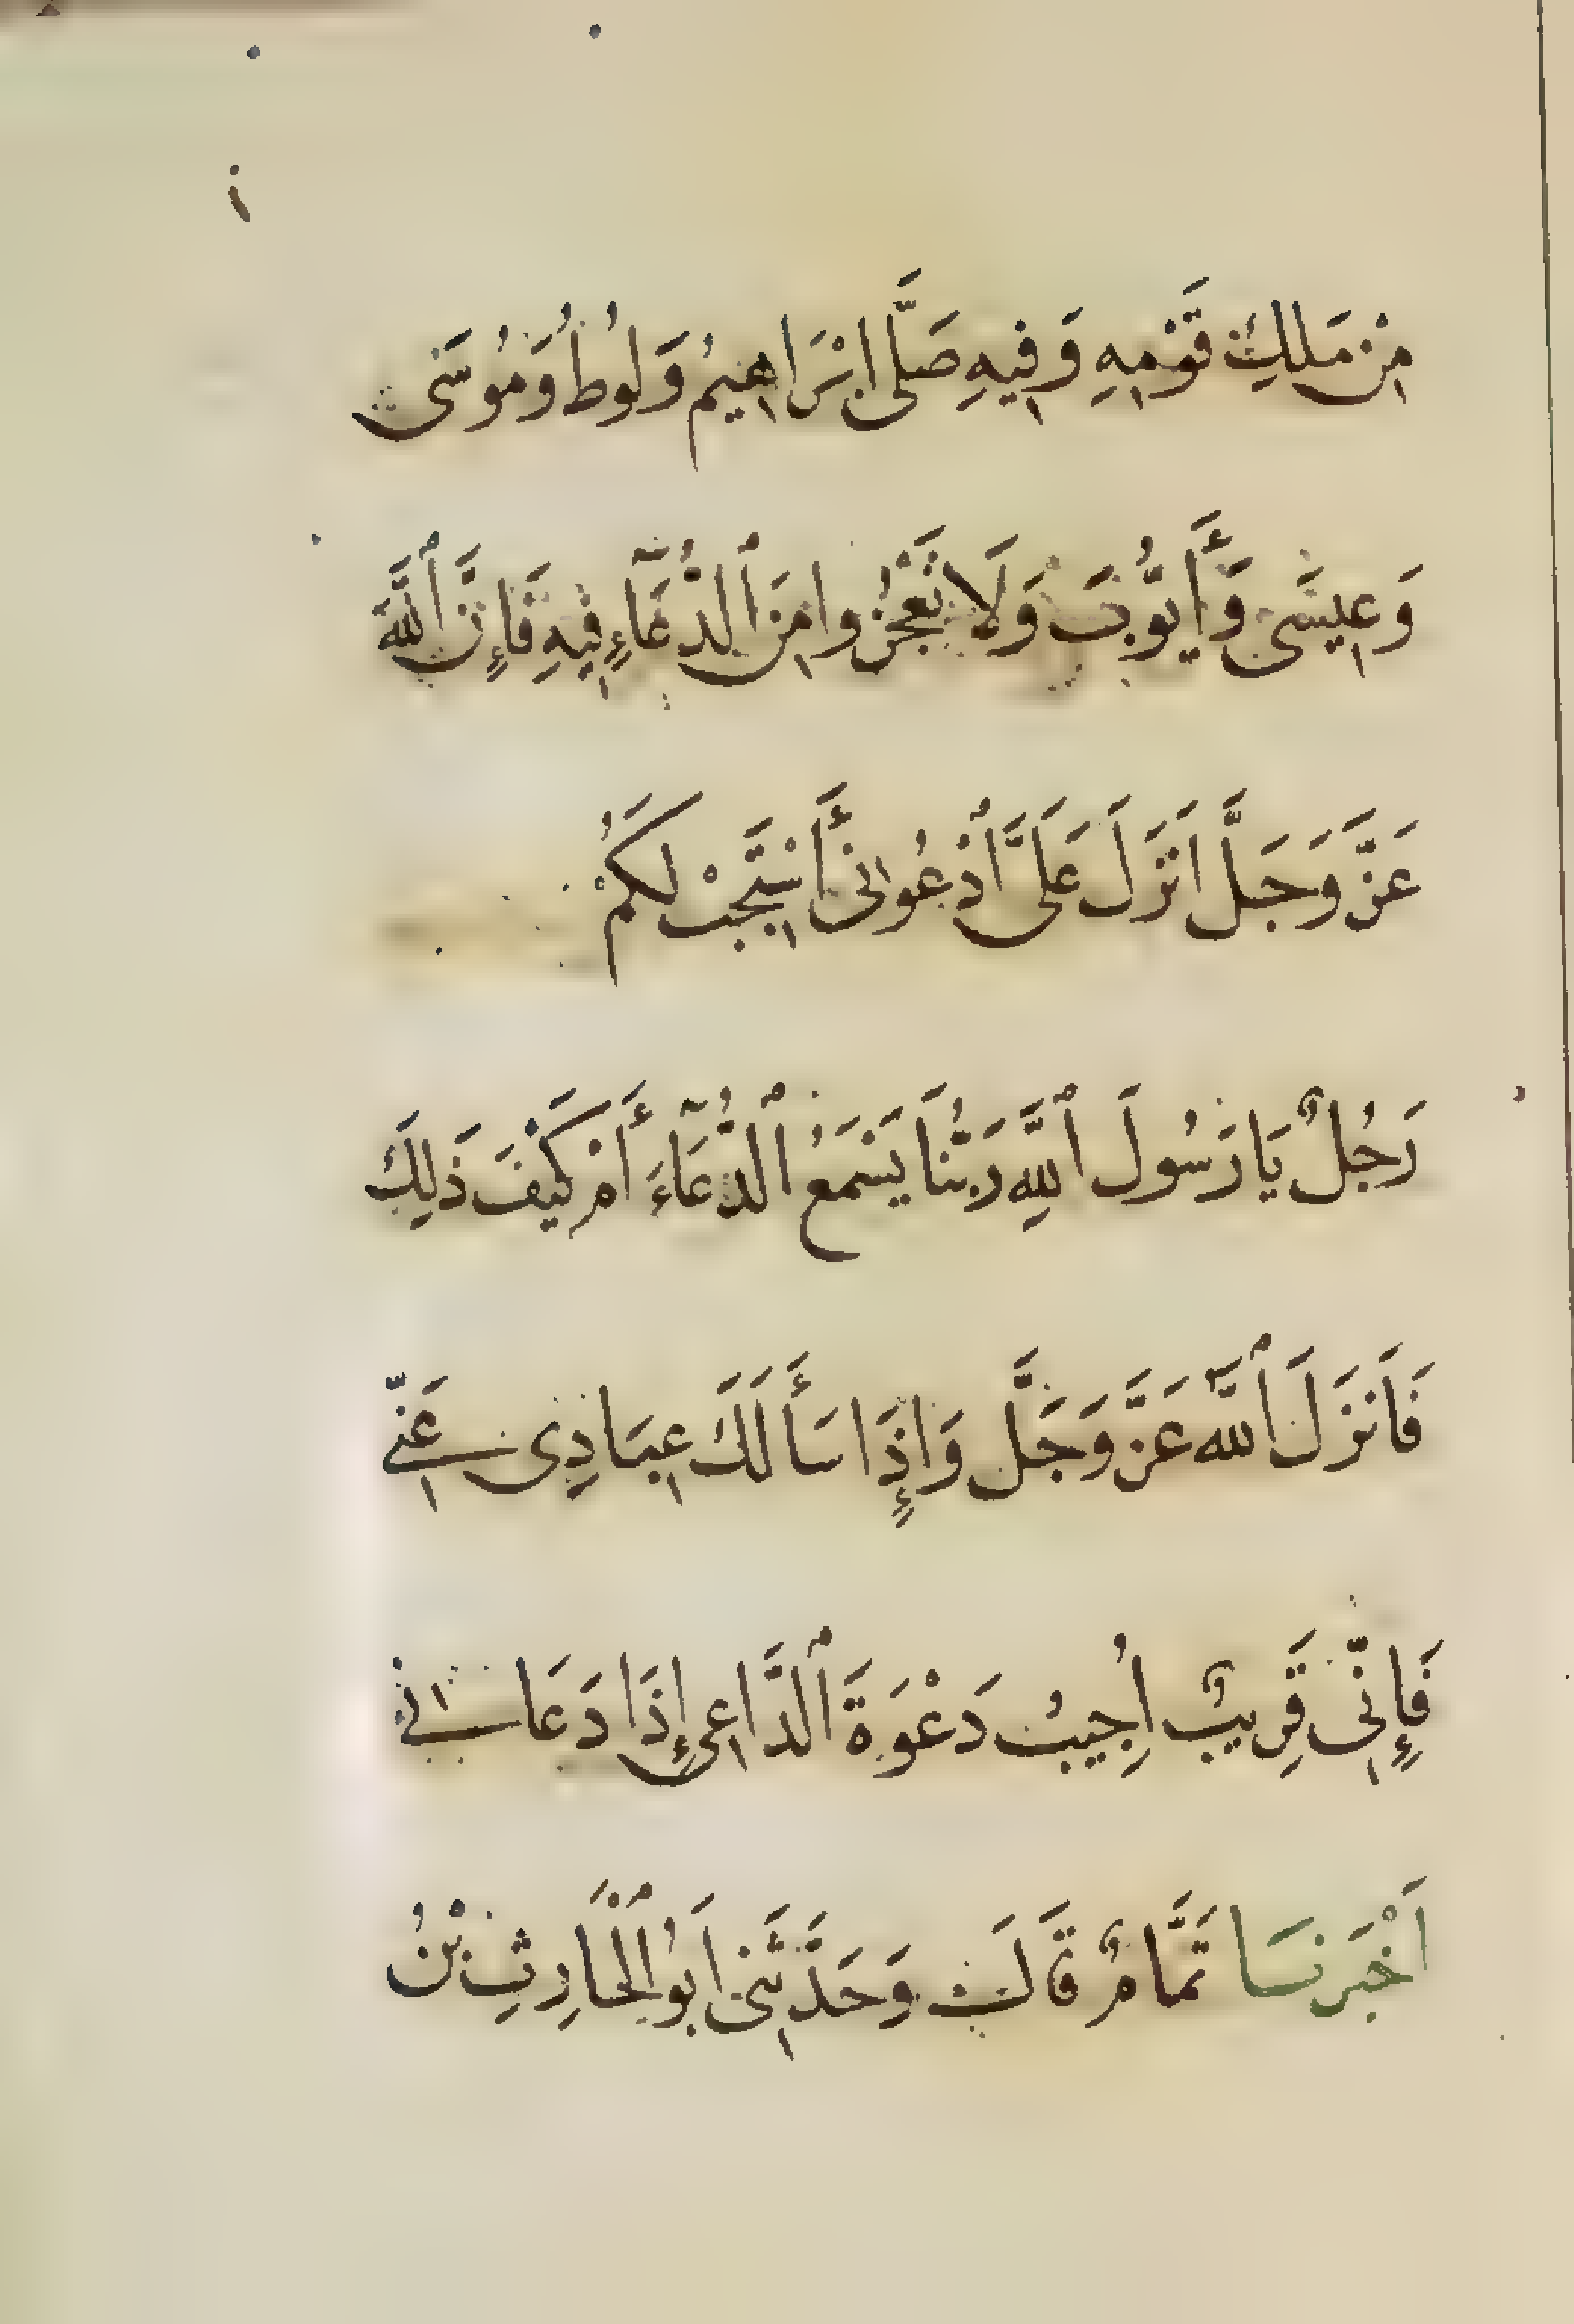 مِنْ مَلِكِ قَوْمِهِ وَفِيهِ صَلَّى ابْرَاهِيمُ وَلُوطُ وَمُوسَى
وَعِيسَى وَأَيُّوبَ وَلَا تَعْجِزُوا مِنَ ٱلدُّعَآءِ فِيهِ فَإِنَّ ٱللَّهَ
عَزَّ وَجَلَّ اَنْزَلَ عَلَىَّ ٱدْعُوانِى أَسْتَجِبْ لَكُمْ
رَجُلٌ يَا رَسُولَ ٱللَّهِ رَبُّنَا يَسْمَعُ ٱلدُّعَآءَ أَمْ كَيْفَ ذَلِكَ
فَاَنْزَلَ ٱللَّه عَزَّ وَجَلَّ وَإِذَا سَأَلَكَ عِبَادِى عَنِّى
فَإِنِّى قَرِيبٌ اُجِيبُ دَعْوَةَ ٱلدَّاعِى إِذَا دَعَانِى
اَخْبَرَنَا تَمَّامٌ قَالَ وَحَدَّثَنِى اَبُو ٱلْحَارِثِ بْنُ